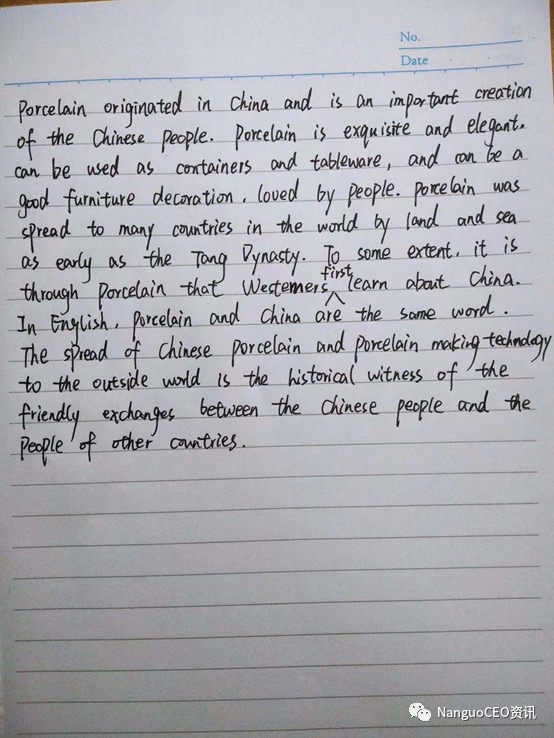 No.
Date
Porcelain originated in China and is an important creation
of the Chinese people. Porcelain is exquisite and elegant.
can be used as containers and tableware, and can be a
good furniture decoration, loved by people. Porcelain was
spread to many countries in the world by land and sea
as early as the Tang Dynasty. To some extent, it is
through porcelain that Westerners first learn about China.
In English, porcelain and China are the same word.
The spread of Chinese porcelain and porcelain making technology
to the outside world is the historical witness of the
friendly exchanges between the Chinese people and the
people of other countries.
NanguoCEO资讯